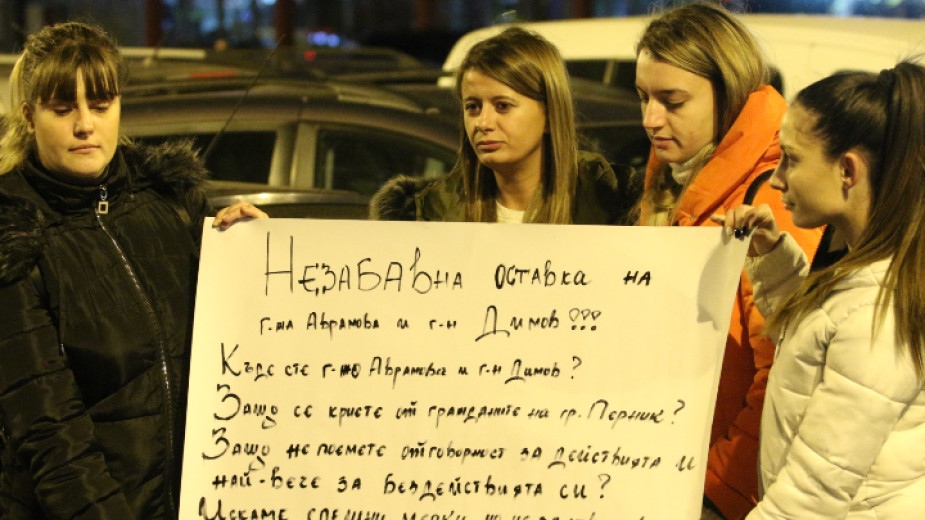 Незабавна оставка на
г-жа Аврамова и г-н Димов!!!
Къде сте г-жо Аврамова и г-н Димов?
Защо се криете от гражданите на гр. Перник?
Защо не поемете отговорност за действията и
най-вече за бездействията си?
Искаме спешни мерки